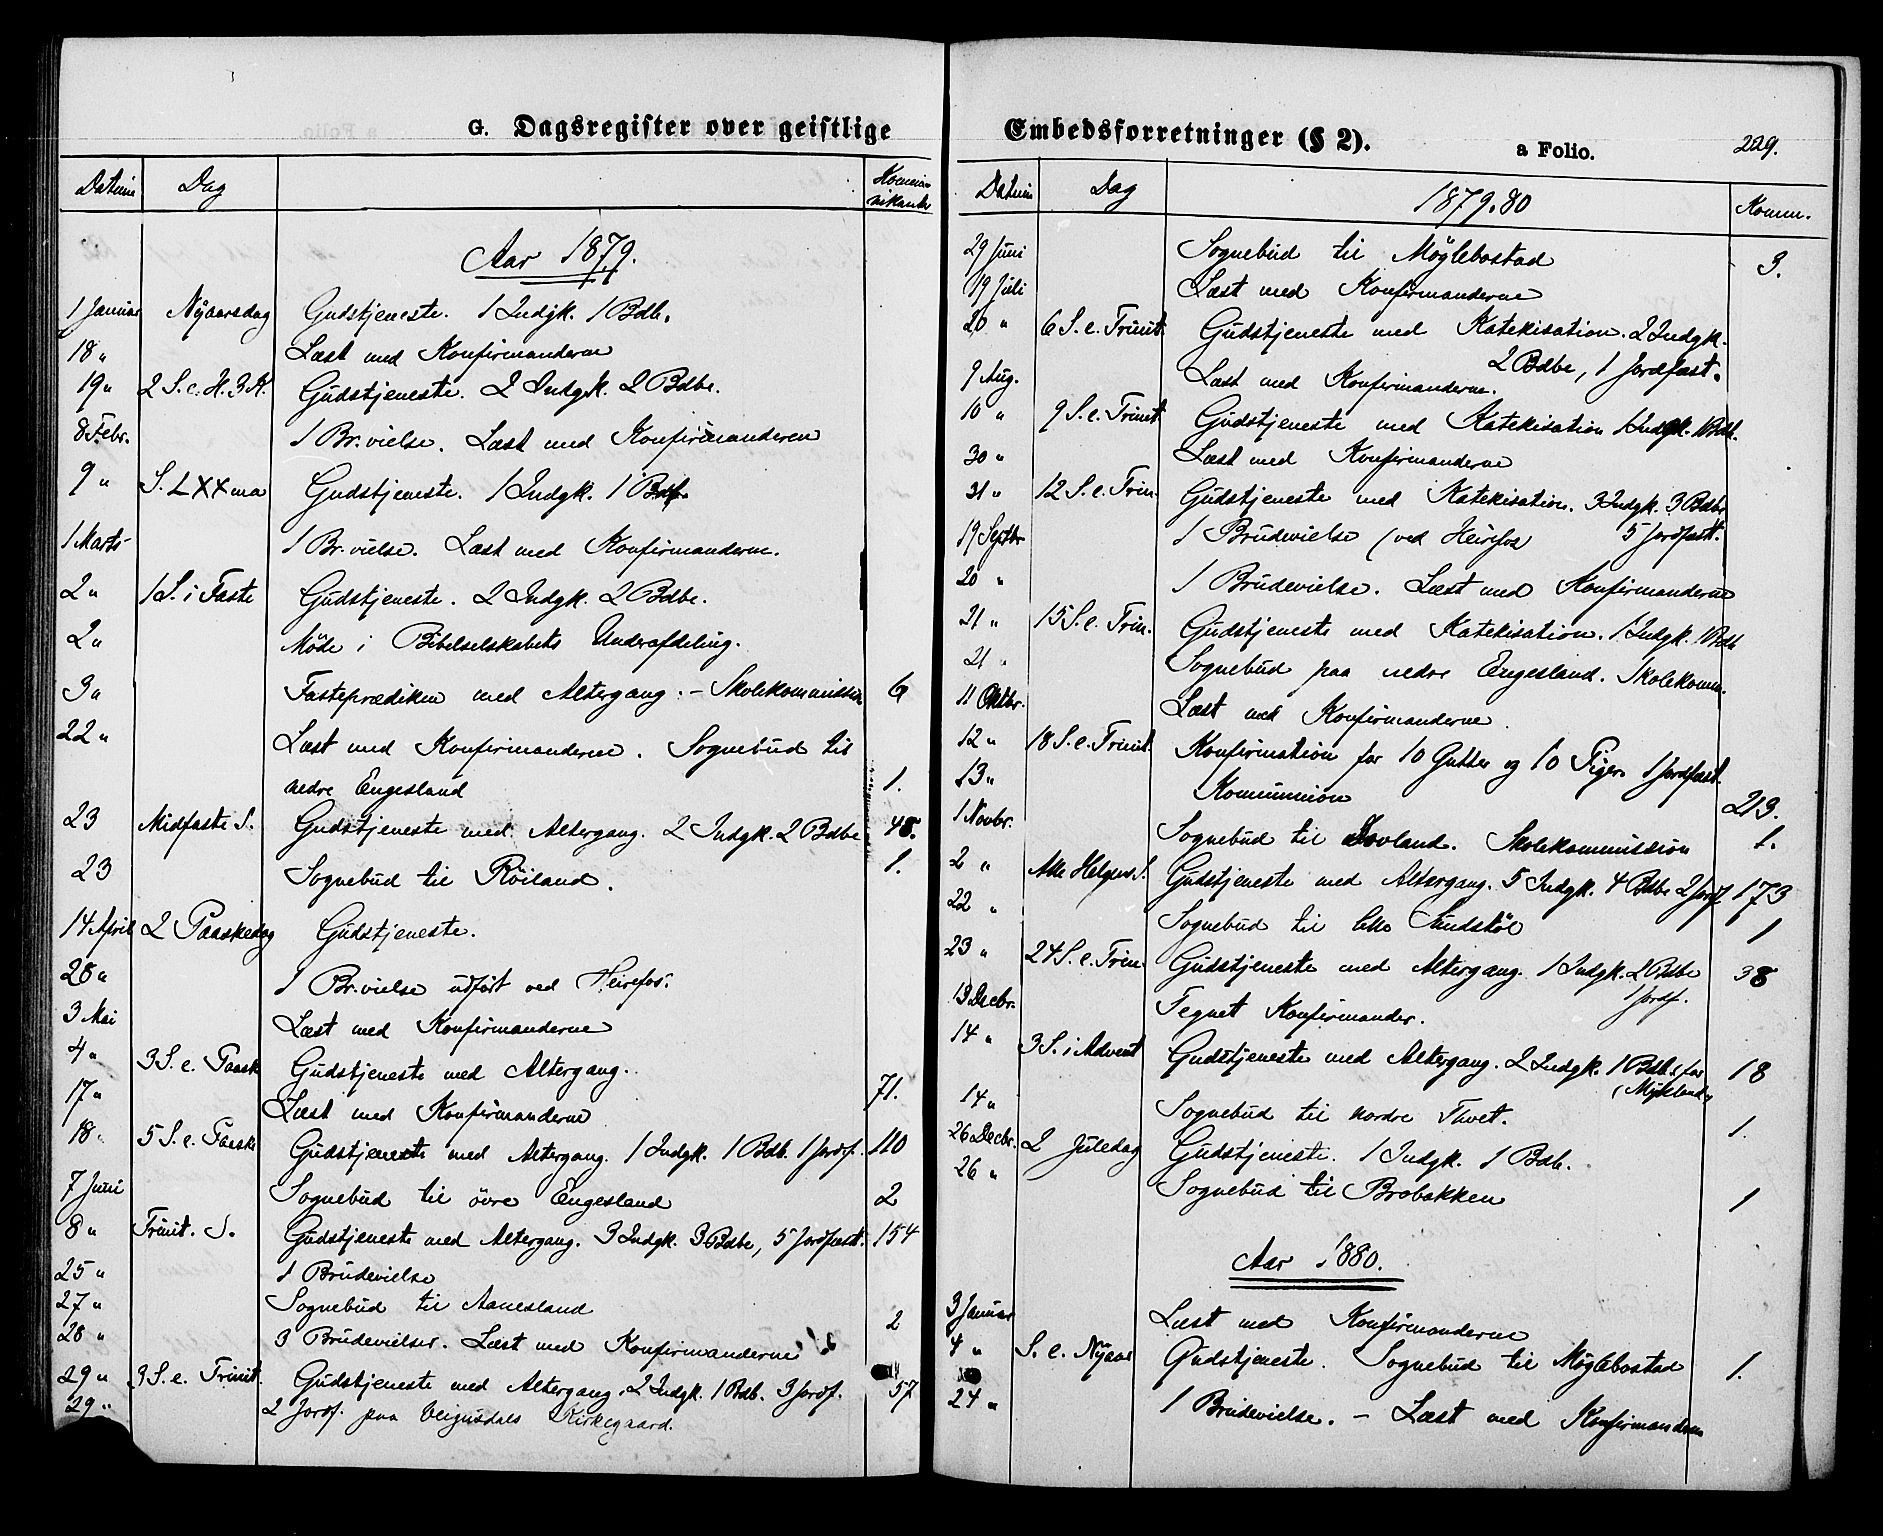 G. Dagsregister over geistlige
Datum Dag Kommunikanter
Aar 1879.
1 Januar Nyaarsdag Gudstjeneste. 1 Indgk. 1 Bdb.
18 " Læst med Konfirmanderne
19 " 2 S. e. H. 3 K. Gudstjeneste. 2 Indgk. 2 Bdbe.
8 Febr. 1 Br.vielse. Læst med Konfirmanderen
9 " S. LXXma Gudstjeneste. 1 Indgk. 1 Bdf.
1 Marts 1 Br.vielse. Læst med Konfirmanderne.
2 " 1 S. i Faste Gudstjeneste. 2 Indgk. 2 Bdbe.
2 " Möde i Bibelselskabets Underafdeling.
3 " Fasteprædiken med Altergang. - Skolekommission 6
22 " Læst med Konfirmanderne. Sognebud til
nedre Engesland 1.
23 Midfaste S. Gudstjeneste med Altergang. 2 Indgk. 2 Bdbe 48.
23 Sognebud til Röiland. 1.
14 April 2 Paaskedag Gudstjeneste.
28 " 1 Br.vielse udfört ved Heirefos.
3 Mai Læst med Konfirmanderne
4 " 3 S. e. Paask Gudstjeneste med Altergang. 71.
17 " Læst med Konfirmanderne
18 " 5 S. e. Paaske Gudstjeneste med Altergang. 1 Indgk. 1 Bdb. 1 Jordf. 110
7 Juni Sognebud til övre Engesland 2
8 " Trinit. S. Gudstjeneste med Altergang. 3 Indgk. 3 Bdbe, 5 Jordfæst. 154
25 " 1 Brudevielse
27 " Sognebud til Aanesland 2
28 " 3 Brudevielser. Læst med Konfirmanderne
29 " 3 S. e. Trinit. Gudstjeneste med Altergang. 2 Indgk. 1 Bdb. 3 Jordf. 57
29 " 2 Jordf. paa Veigusdals Kirkegaard.
Embedsforretninger (§ 2).
a Folio. 229.
Datum Dag 1879.80 Komm.
29 Juni Sognebud til Möglebostad 3.
19 Juli Læst med Konfirmanderne
20 " 6 S. e. Trinit. Gudstjeneste med Katekisation. 2 Indgk.
2 Bdbe, 1 Jordfæst.
9 Aug. Læst med Konfirmanderne.
10 " 9 S. e. Trinit. Gudstjeneste med Katekisation 1 Indgk. 1 Bdb.
30 " Læst med Konfirmanderne
31 " 12 S. e. Trin. Gudstjeneste med Katekisation. 3 Indgk. 3 Bdbe
5 Jordfæst.
19 Septbr 1 Brudevielse (ved Heirefos
20 " 1 Brudevielse. Læst med Konfirmanderne
21 " 15 S. e. Trin. Gudstjeneste med Katekisation. 1 Indgk. 1 Bdb
21 " Sognebud paa nedre Engesland. Skolekomm.
11 Oktbr. Læst med Konfirmanderne.
12 " 18 S. e. Trinit. Konfirmation for 10 Gutter og 10 Piger. 1 Jordfæst.
13 " Kommunion 213.
1 Novbr. Sognebud til Dovland. Skolekommission 1.
2 " Alle Helgens S. Gudstjeneste med Altergang. 5 Indgk. 4 Bdbe 2 Jordf 173
22 " Sognebud til Sundstöl 1
23 " 24 S. e. Trin. Gudstjeneste med Altergang. 1 Indgk. 2 Bdbe 38
1 Jordf.
13 Decbr. Tegnet Konfirmander.
14 " 3 S. i Advent Gudstjeneste med Altergang. 2 Indgk. 1 Bdb. (for 18
Mykland)
14 " Sognebud til nordre Thvet. 1.
26 Decbr. 2 Juledag Gudstjeneste. 1 Indgk. 1 Bdb.
26 " Sognebud til Brobakken 1
Aar 1880.
3 Januar Læst med Konfirmanderne
4 " S. e. Nyaar Gudstjeneste. Sognebud til Möglebostad 1.
24 " 1 Brudevielse. - Læst med Konfirmandern